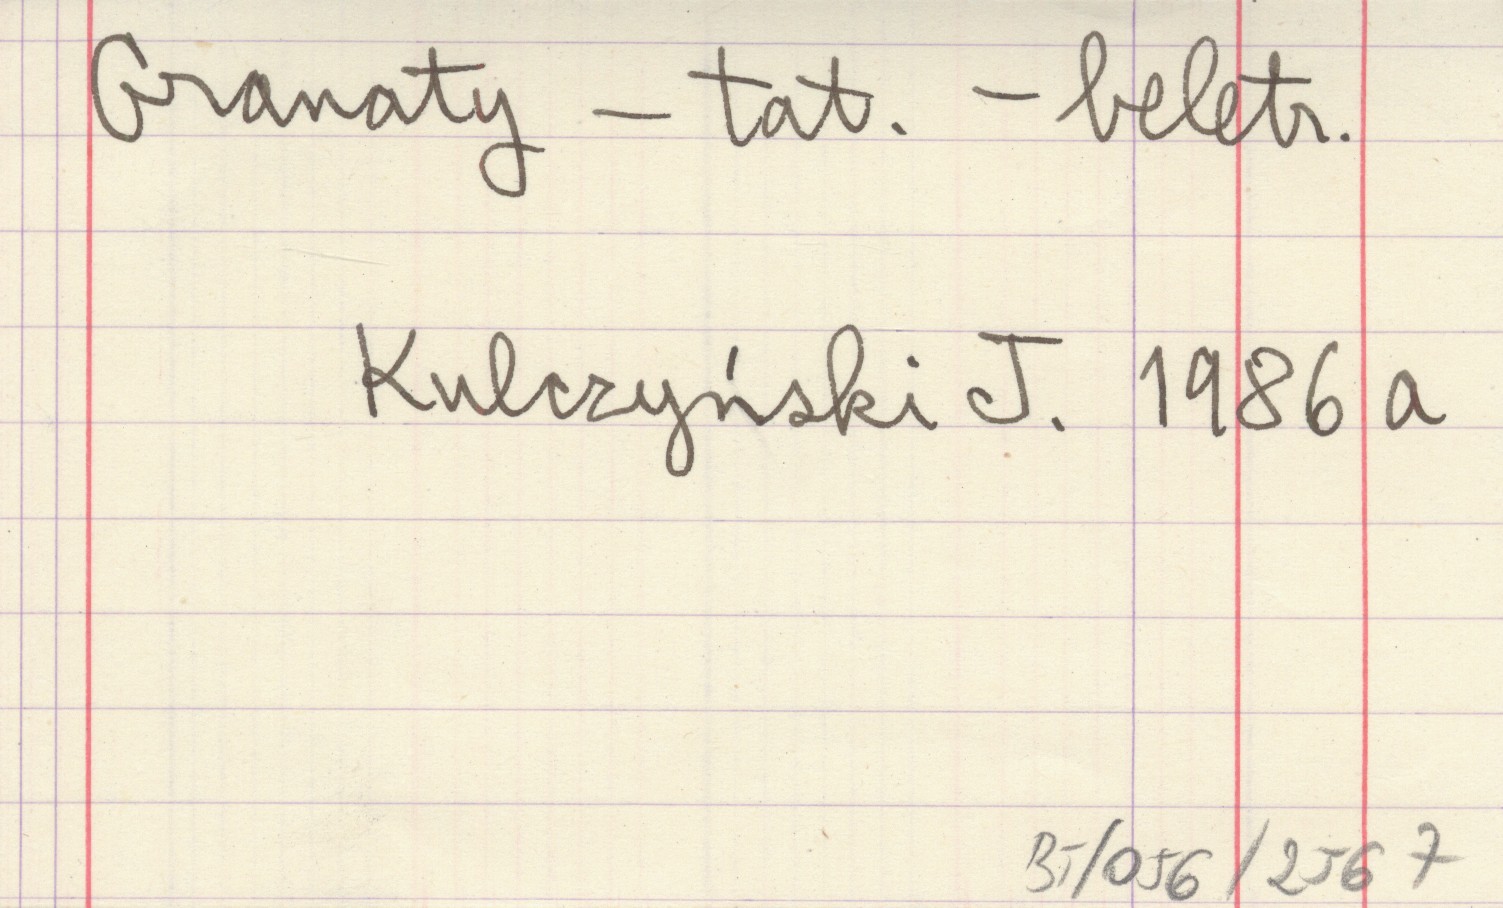 Granaty – tat. – beletr.
Kulczyński J. 1986 a
BT/056/2567